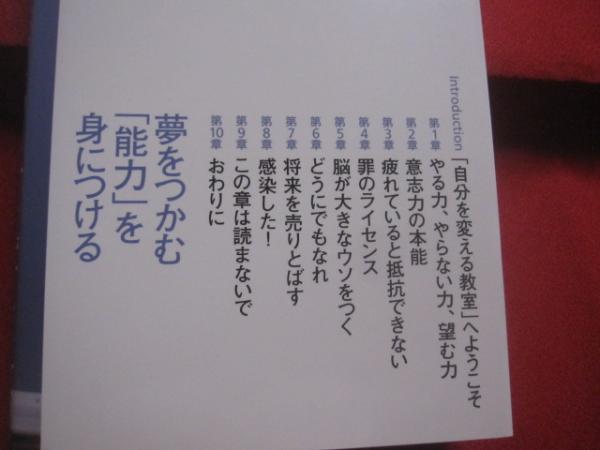 Introduction 「自分を変える教室」へようこそ
第1章 やる力、やらない力、望む力
第2章 意志力の本能
第3章 疲れていると抵抗できない
第4章 罪のライセンス
第5章 脳が大きなウソをつく
第6章 どうにでもなれ
第7章 将来を売りとばす
第8章 感染した！
第9章 この章は読まないで
第10章 おわりに
夢をつかむ
「能力」を
身につける